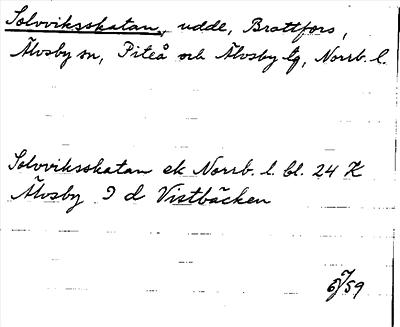 Solvviksskatan, udde, Brattfors,
Älvsby sn, Piteå och Älvsby tg, Norrb. l.
Solvviksskatan ek Norrb. l. bl. 24 K
Älvsby 9 d Vistbäcken
6/7 59